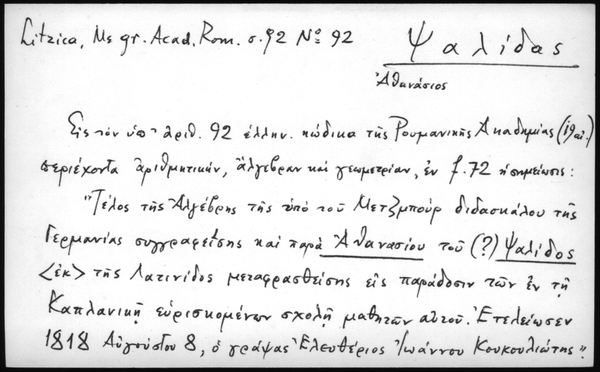 Litzica, Ms gr. Acad. Rom. σ. 92 Nº 92
Ψαλίδας
Ἀθανάσιος
Εἰς τὸν ὑπ' ἀριθ. 92 ἑλλην. κώδικα τῆς Ρουμανικῆς Ἀκαδημίας (19 αἰ.)
περιέχοντα ἀριθμητικήν, ἄλγεβραν καὶ γεωμετρίαν, ἐν f. 72 ἡ σημείωσις:
"Τέλος τῆς Ἀλγέβρης τῆς ὑπὸ τοῦ Μετζμποὺρ διδασκάλου τῆς
Γερμανίας συγγραφείσης καὶ παρὰ Ἀθανασίου τοῦ (?) Ψαλίδος
<ἐκ> τῆς Λατινίδος μεταφρασθείσης εἰς παράδοσιν τῶν ἐν τῇ
Καπλανικῇ εὑρισκομένων σχολῇ μαθητῶν αὐτοῦ. Ἐτελείωσεν
1818 Αὐγούστου 8, ὁ γράψας Ἐλευθέριος Ἰωάννου Κουκουλιώτης".